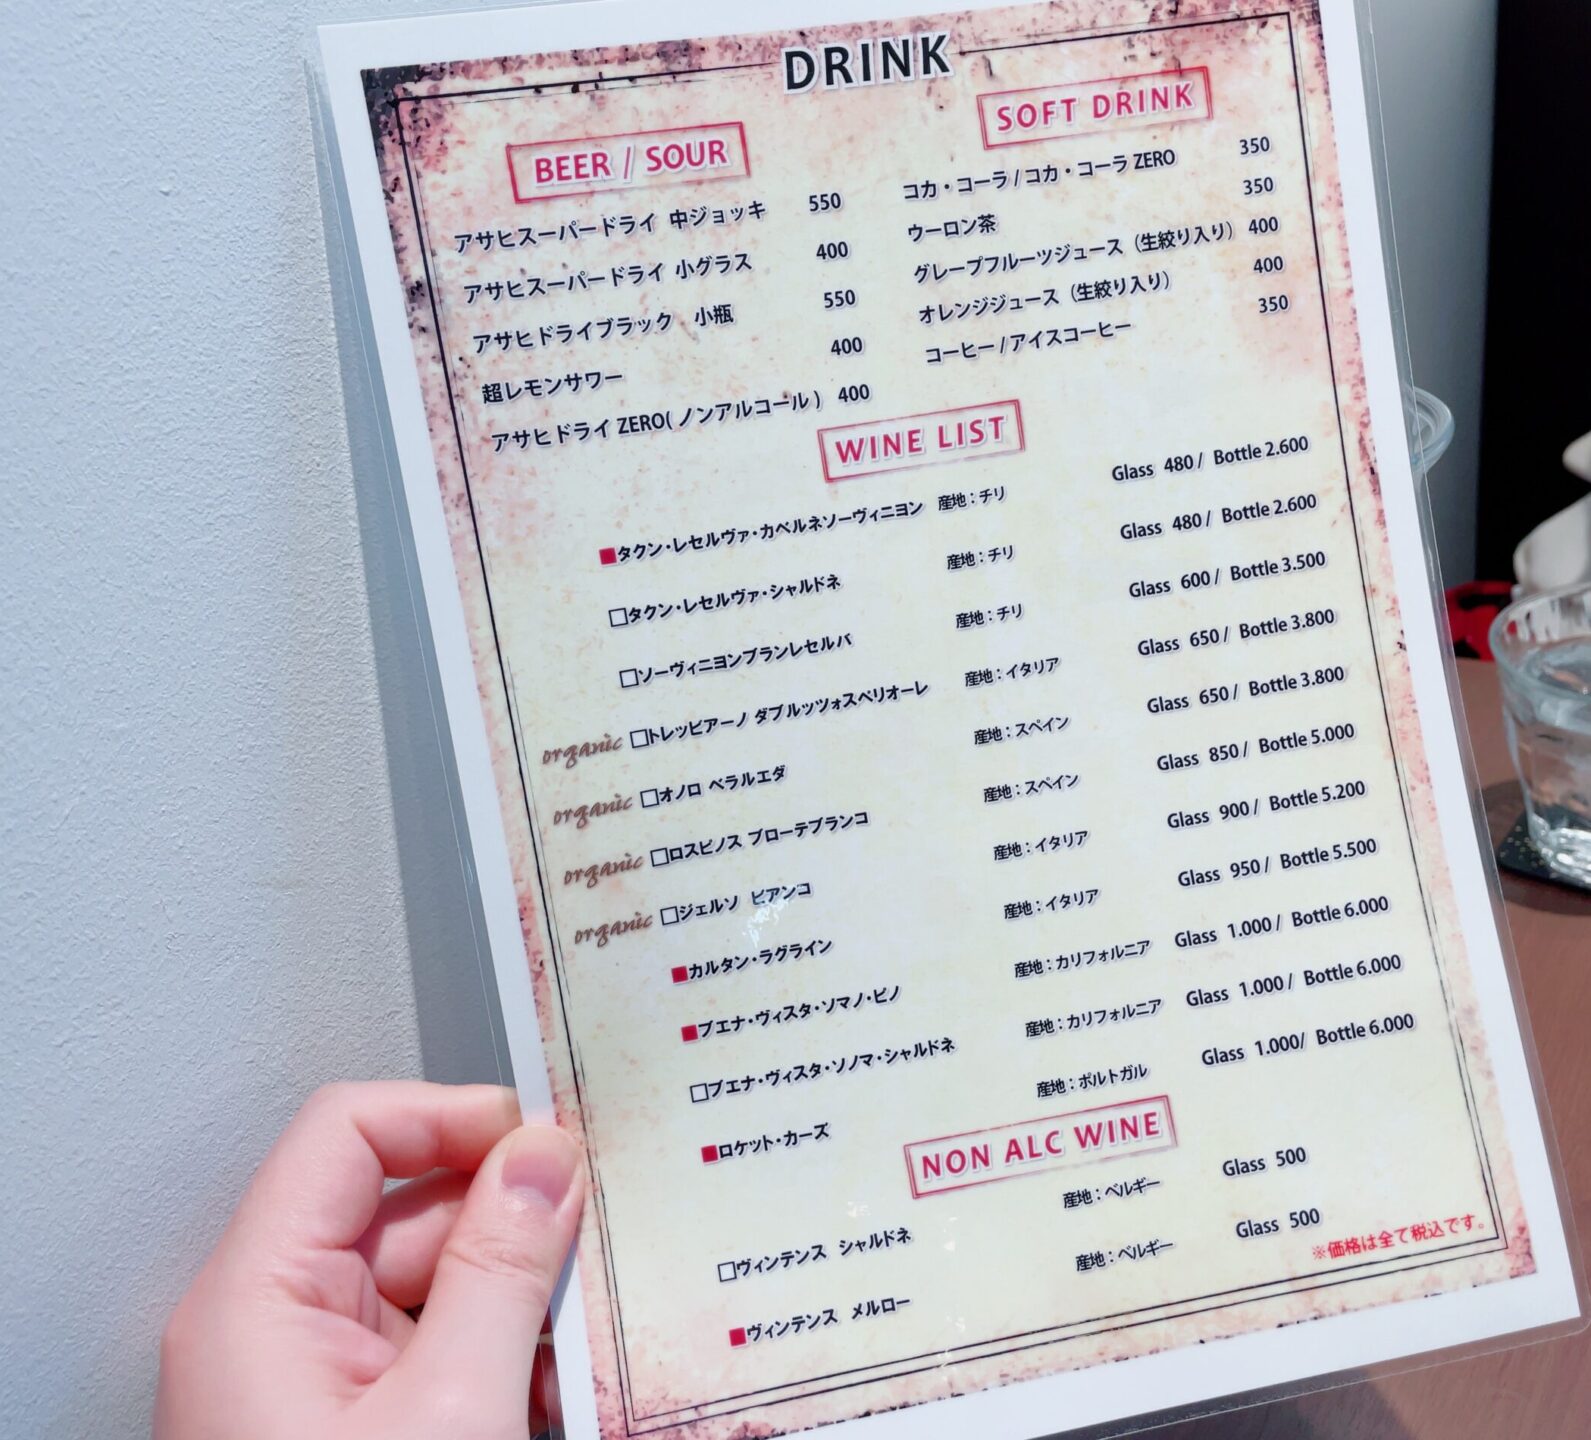 DRINK
BEER / SOUR
アサヒスーパードライ 中ジョッキ 550
アサヒスーパードライ 小グラス 400
アサヒドライブラック 小瓶 550
超レモンサワー 400
アサヒドライ ZERO( ノンアルコール ) 400
SOFT DRINK
コカ・コーラ / コカ・コーラ ZERO 350
ウーロン茶 350
グレープフルーツジュース（生絞り入り） 400
オレンジジュース（生絞り入り） 400
コーヒー / アイスコーヒー 350
WINE LIST
■タクン・レセルヴァ・カベルネソーヴィニヨン 産地：チリ Glass 480 / Bottle 2.600
□タクン・レセルヴァ・シャルドネ 産地：チリ Glass 480 / Bottle 2.600
□ソーヴィニヨンブランレセルバ 産地：チリ Glass 600 / Bottle 3.500
organic □トレッビアーノ ダブルッツォスペリオーレ 産地：イタリア Glass 650 / Bottle 3.800
organic □オノロ ベラルエダ 産地：スペイン Glass 650 / Bottle 3.800
organic □ロスピノス ブローテブランコ 産地：スペイン Glass 850 / Bottle 5.000
organic □ジェルソ ビアンコ 産地：イタリア Glass 900 / Bottle 5.200
■カルタン・ラグライン 産地：イタリア Glass 950 / Bottle 5.500
■ブエナ・ヴィスタ・ソマノ・ピノ 産地：カリフォルニア Glass 1.000 / Bottle 6.000
□ブエナ・ヴィスタ・ソノマ・シャルドネ 産地：カリフォルニア Glass 1.000 / Bottle 6.000
■ロケット・カーズ 産地：ポルトガル Glass 1.000/ Bottle 6.000
NON ALC WINE
□ヴィンテンス シャルドネ 産地：ベルギー Glass 500
■ヴィンテンス メルロー 産地：ベルギー Glass 500
※価格は全て税込です。